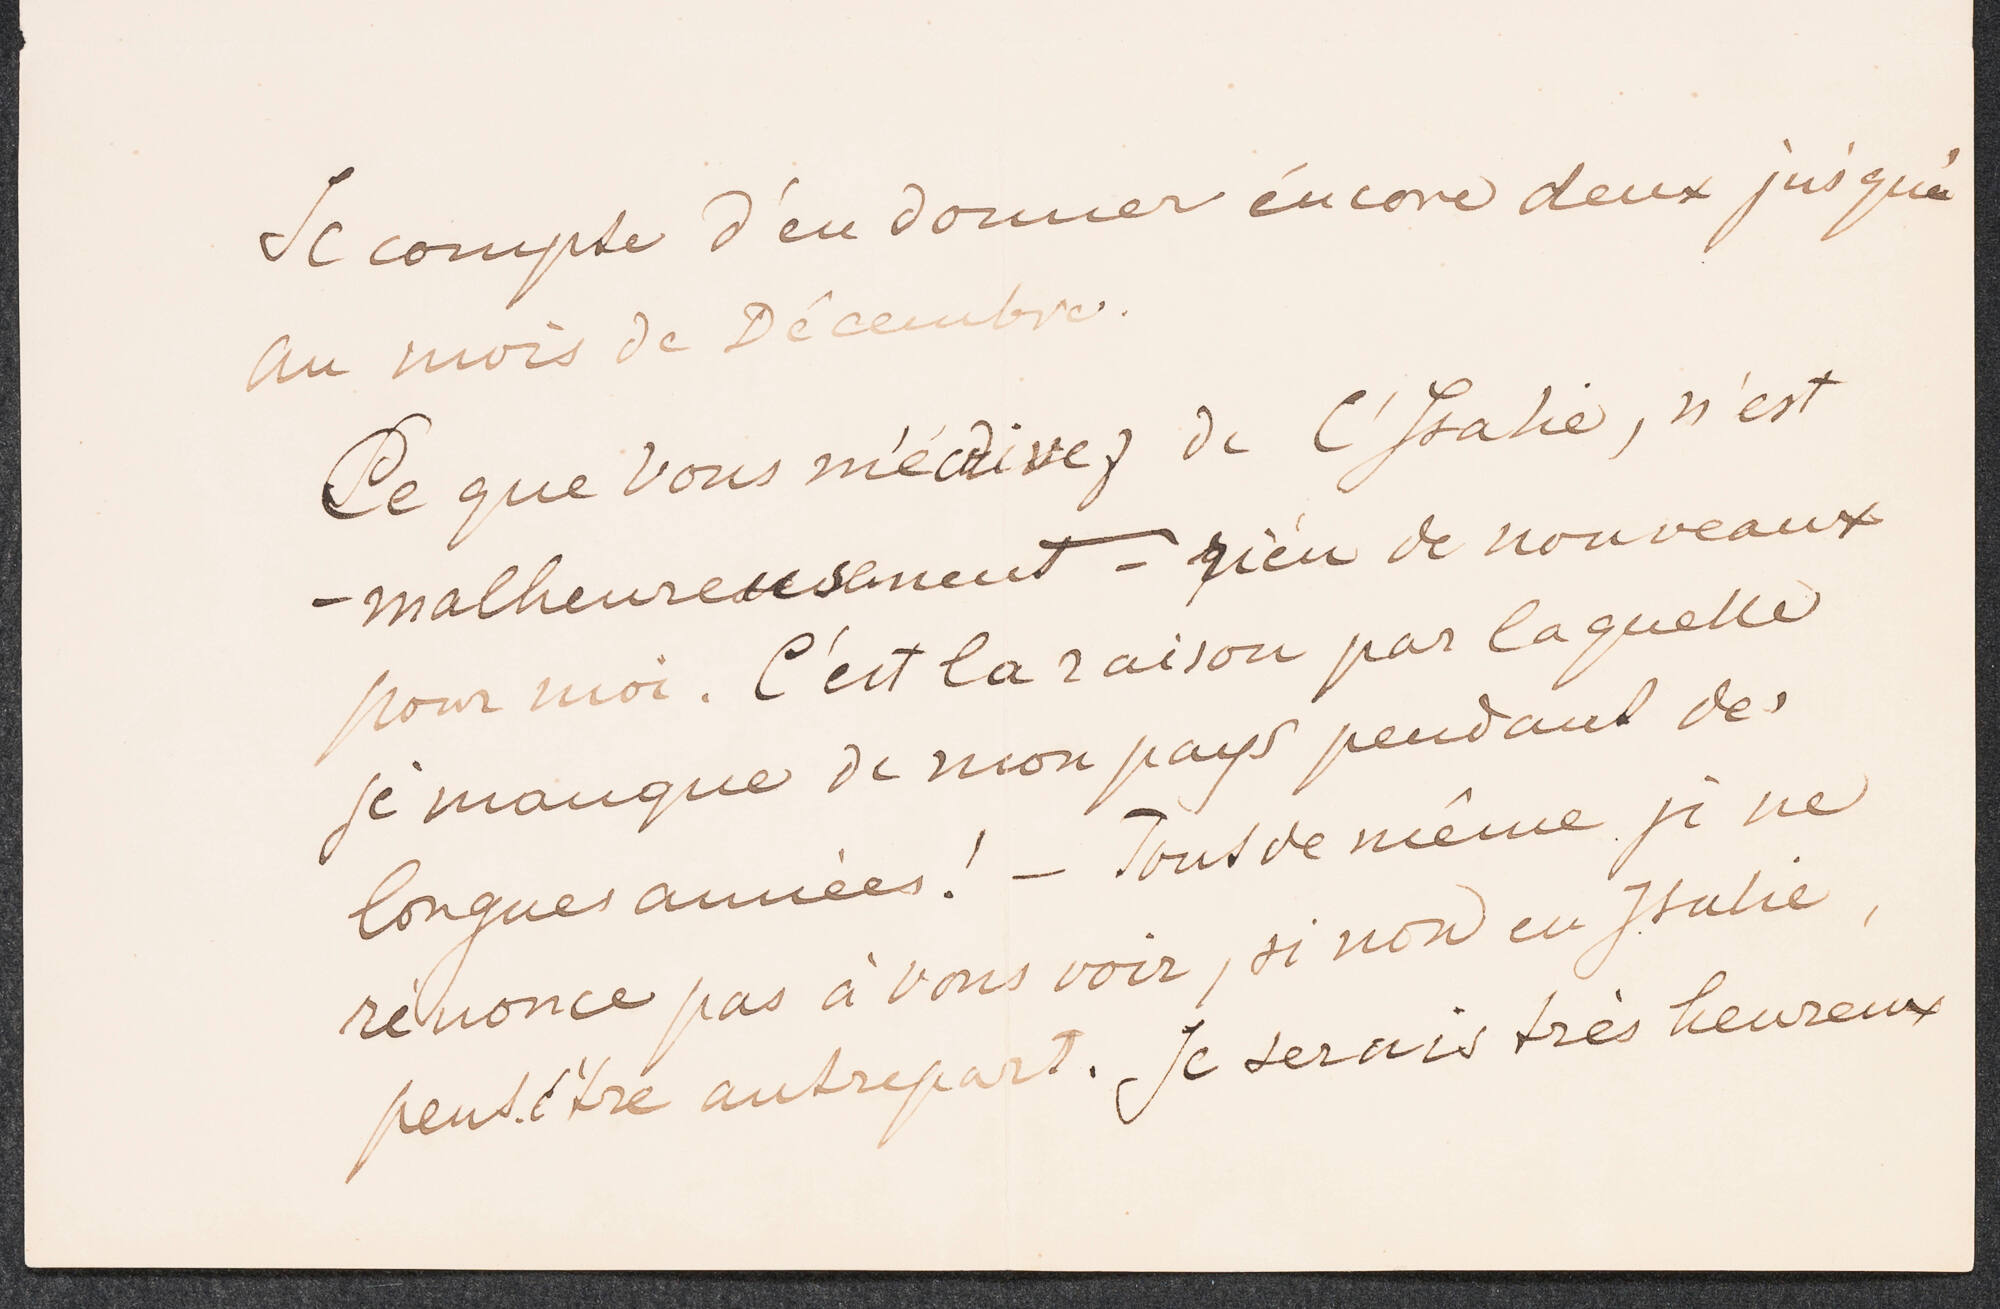 Je compte d'en donner éncore deux jusqu'à
au mois de Décembre.
Ce que vous m'écrivez de l'Italie, n'est
- malheureusement - rién de nouveaux
pour moi. C'est la raison par laquelle
jé manque de mon pays pendant des
longues années! - Tout de même je ne
rénonce pas à vous voir, si non en Italie,
peut-être autrepart. Je serais très heureux